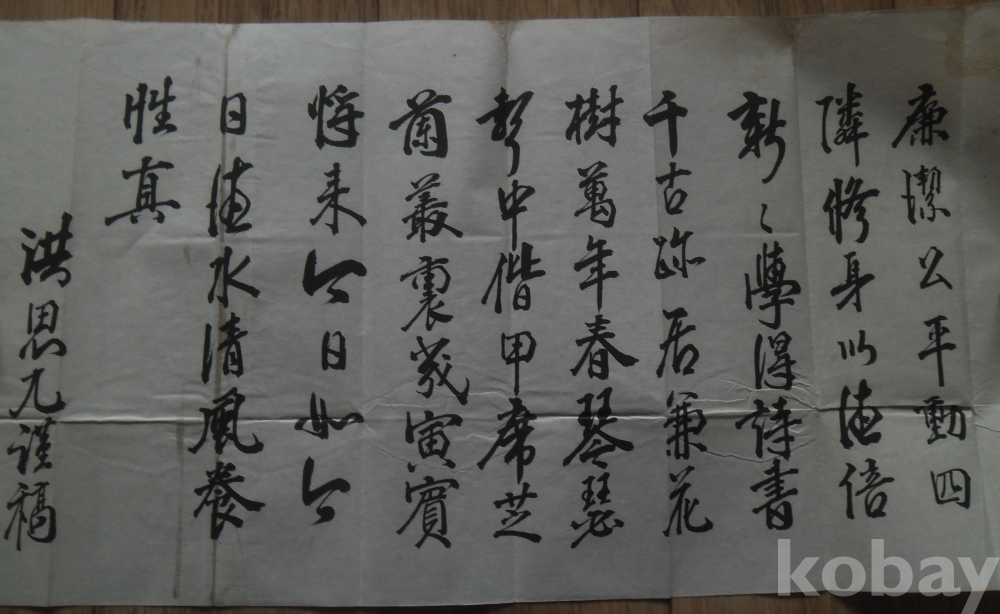 廉潔公平動四
隣修身以德倍
新〻學得詩書
千古跡居兼花
樹萬年春琴瑟
聲中偕甲席芝
蘭叢裏幾寅賓
將来今日如今
日德水清風養
性真
洪思謹稿
kobay